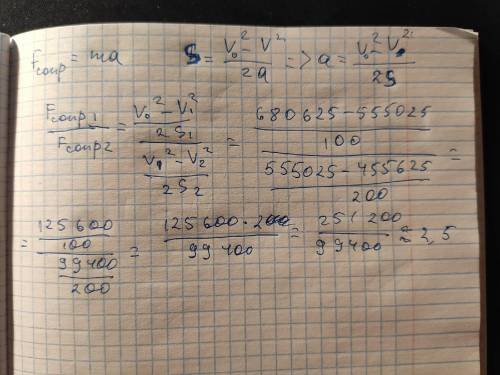 Fсопр = ma   S = V₀² - V² / 2a => a = V₀² - V₀² / 2S
Fсопр1 / Fсопр2 = (V₀² - V₁² / 2S₁) / (V₁² - V₂² / 2S₂) = (680625 - 555025 / 100) / (555025 - 455625 / 200) =
= (125600 / 100) / (99400 / 200) = 125600 · 200 / 99400 = 251200 / 99400 ≈ 2,5